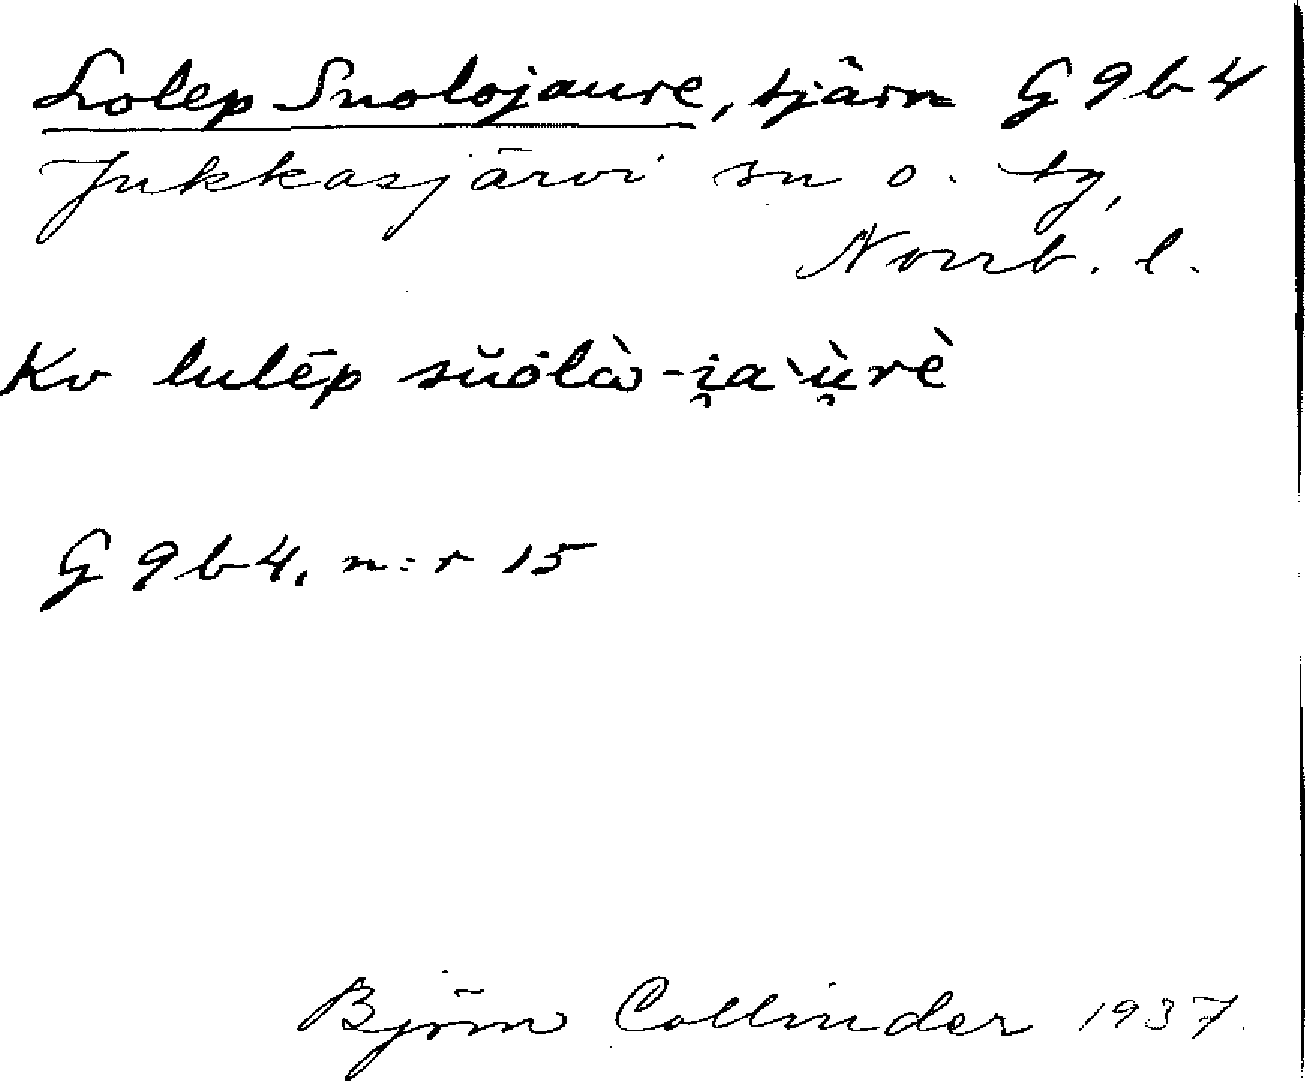 Lolep Suolojaure, tjärn G9b4
Jukkasjärvi sn o. tg,
Norrb. l.
Kv lulēp sŭölὰ-i̯a`ù̯rè
G9b4, n:r 15
Björn Collinder 1937.